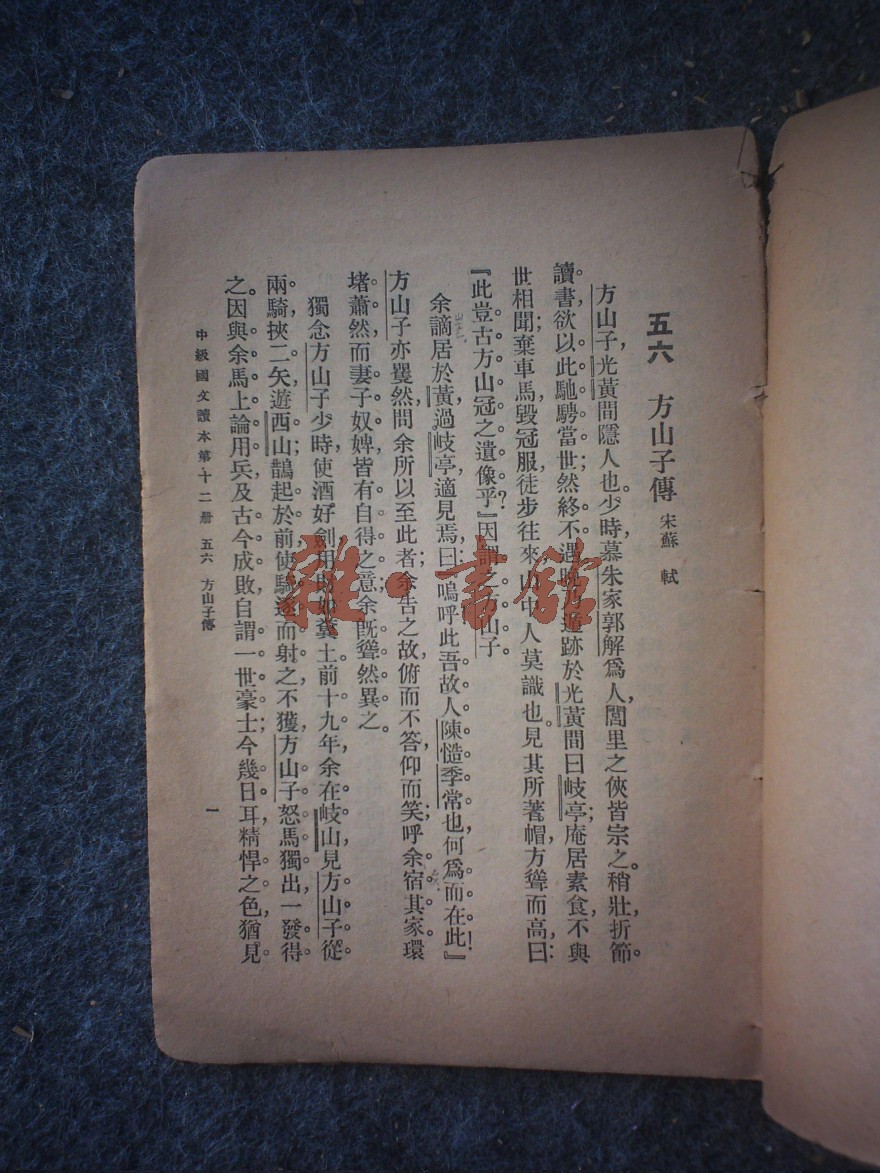 五六　方山子傳　宋蘇　軾
方山子，光黃間隱人也。少時慕朱家郭解爲人，閭里之俠皆宗之。稍壯，折節
讀書，欲以此馳騁當世，然終不遇。晚乃遁跡於光黃間，曰岐亭；庵居素食，不與
世相聞；棄車馬，毀冠服，徒步往來山中，人莫識也。見其所著帽，方聳而高，曰：
『此豈古方山冠之遺像乎？』因謂之方山子。
余謫居於黃，過岐亭，適見焉；曰：嗚呼此吾故人陳慥季常也，何爲而在此！』
方山子亦矍然，問余所以至此者；余告之故，俯而不答，仰而笑；呼余宿其家。環
堵蕭然，而妻子奴婢皆有自得之意。余旣聳然異之。
獨念方山子少時，使酒好劍，用財如糞土。前十九年，余在岐山，見方山子從
兩騎，挾二矢，遊西山；鵲起於前，使騎逐而射之，不獲，方山子怒馬獨出，一發得
之。因與余馬上論用兵及古今成敗，自謂一世豪士；今幾日耳，精悍之色，猶見
中級國文讀本第十二册　五六　方山子傳　一
雜·書館